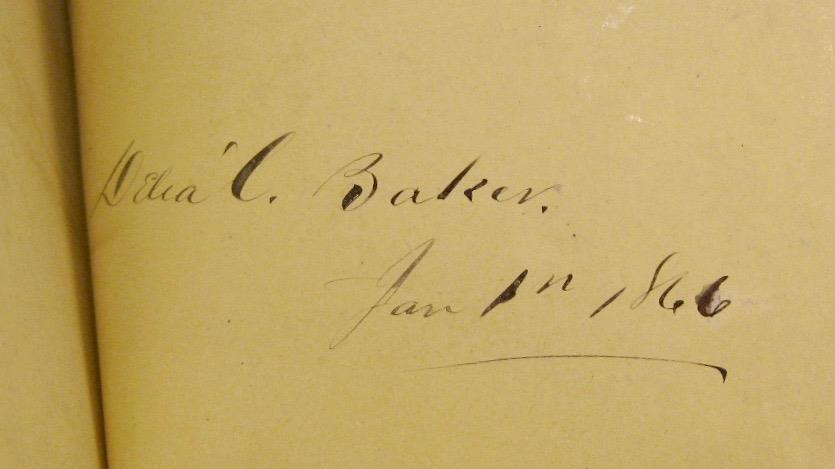 Delia C. Baker.
Jan 1st 1866